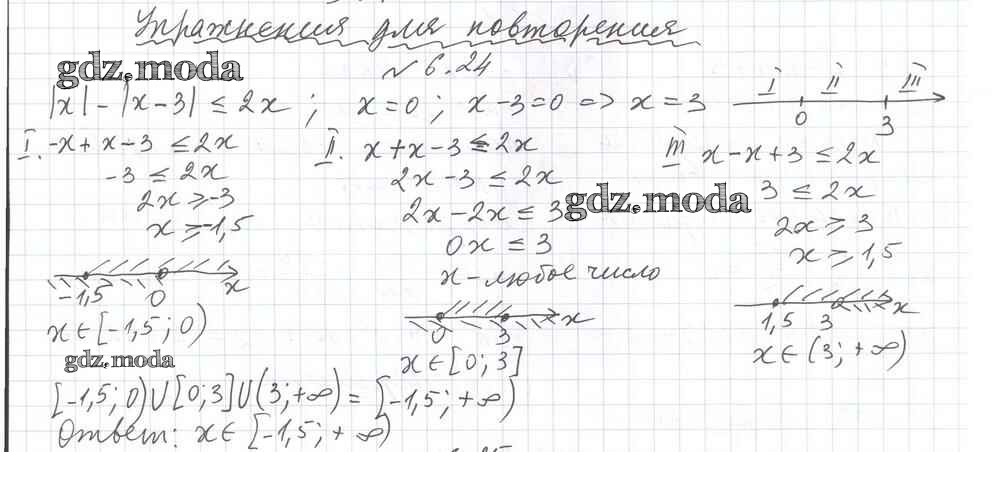 Упражнения для повторения
gdz.moda
№ 6.24
|x| - |x-3| ≤ 2x ; x=0 ; x-3=0 => x=3
I II III
0 3
I. -x + x - 3 ≤ 2x
-3 ≤ 2x
2x ≥ -3
x ≥ -1,5
-1,5 0 x
x∈[-1,5; 0)
gdz.moda
II. x+x-3 ≤ 2x
2x-3 ≤ 2x
2x-2x ≤ 3
0x ≤ 3
x-любое число
0 3 x
x∈[0; 3]
III x-x+3 ≤ 2x
gdz.moda
3 ≤ 2x
2x ≥ 3
x ≥ 1,5
1,5 3 x
x∈(3; +∞)
[-1,5; 0)U[0;3]U(3;+∞) = [-1,5; +∞)
Ответ: x∈[-1,5; +∞)